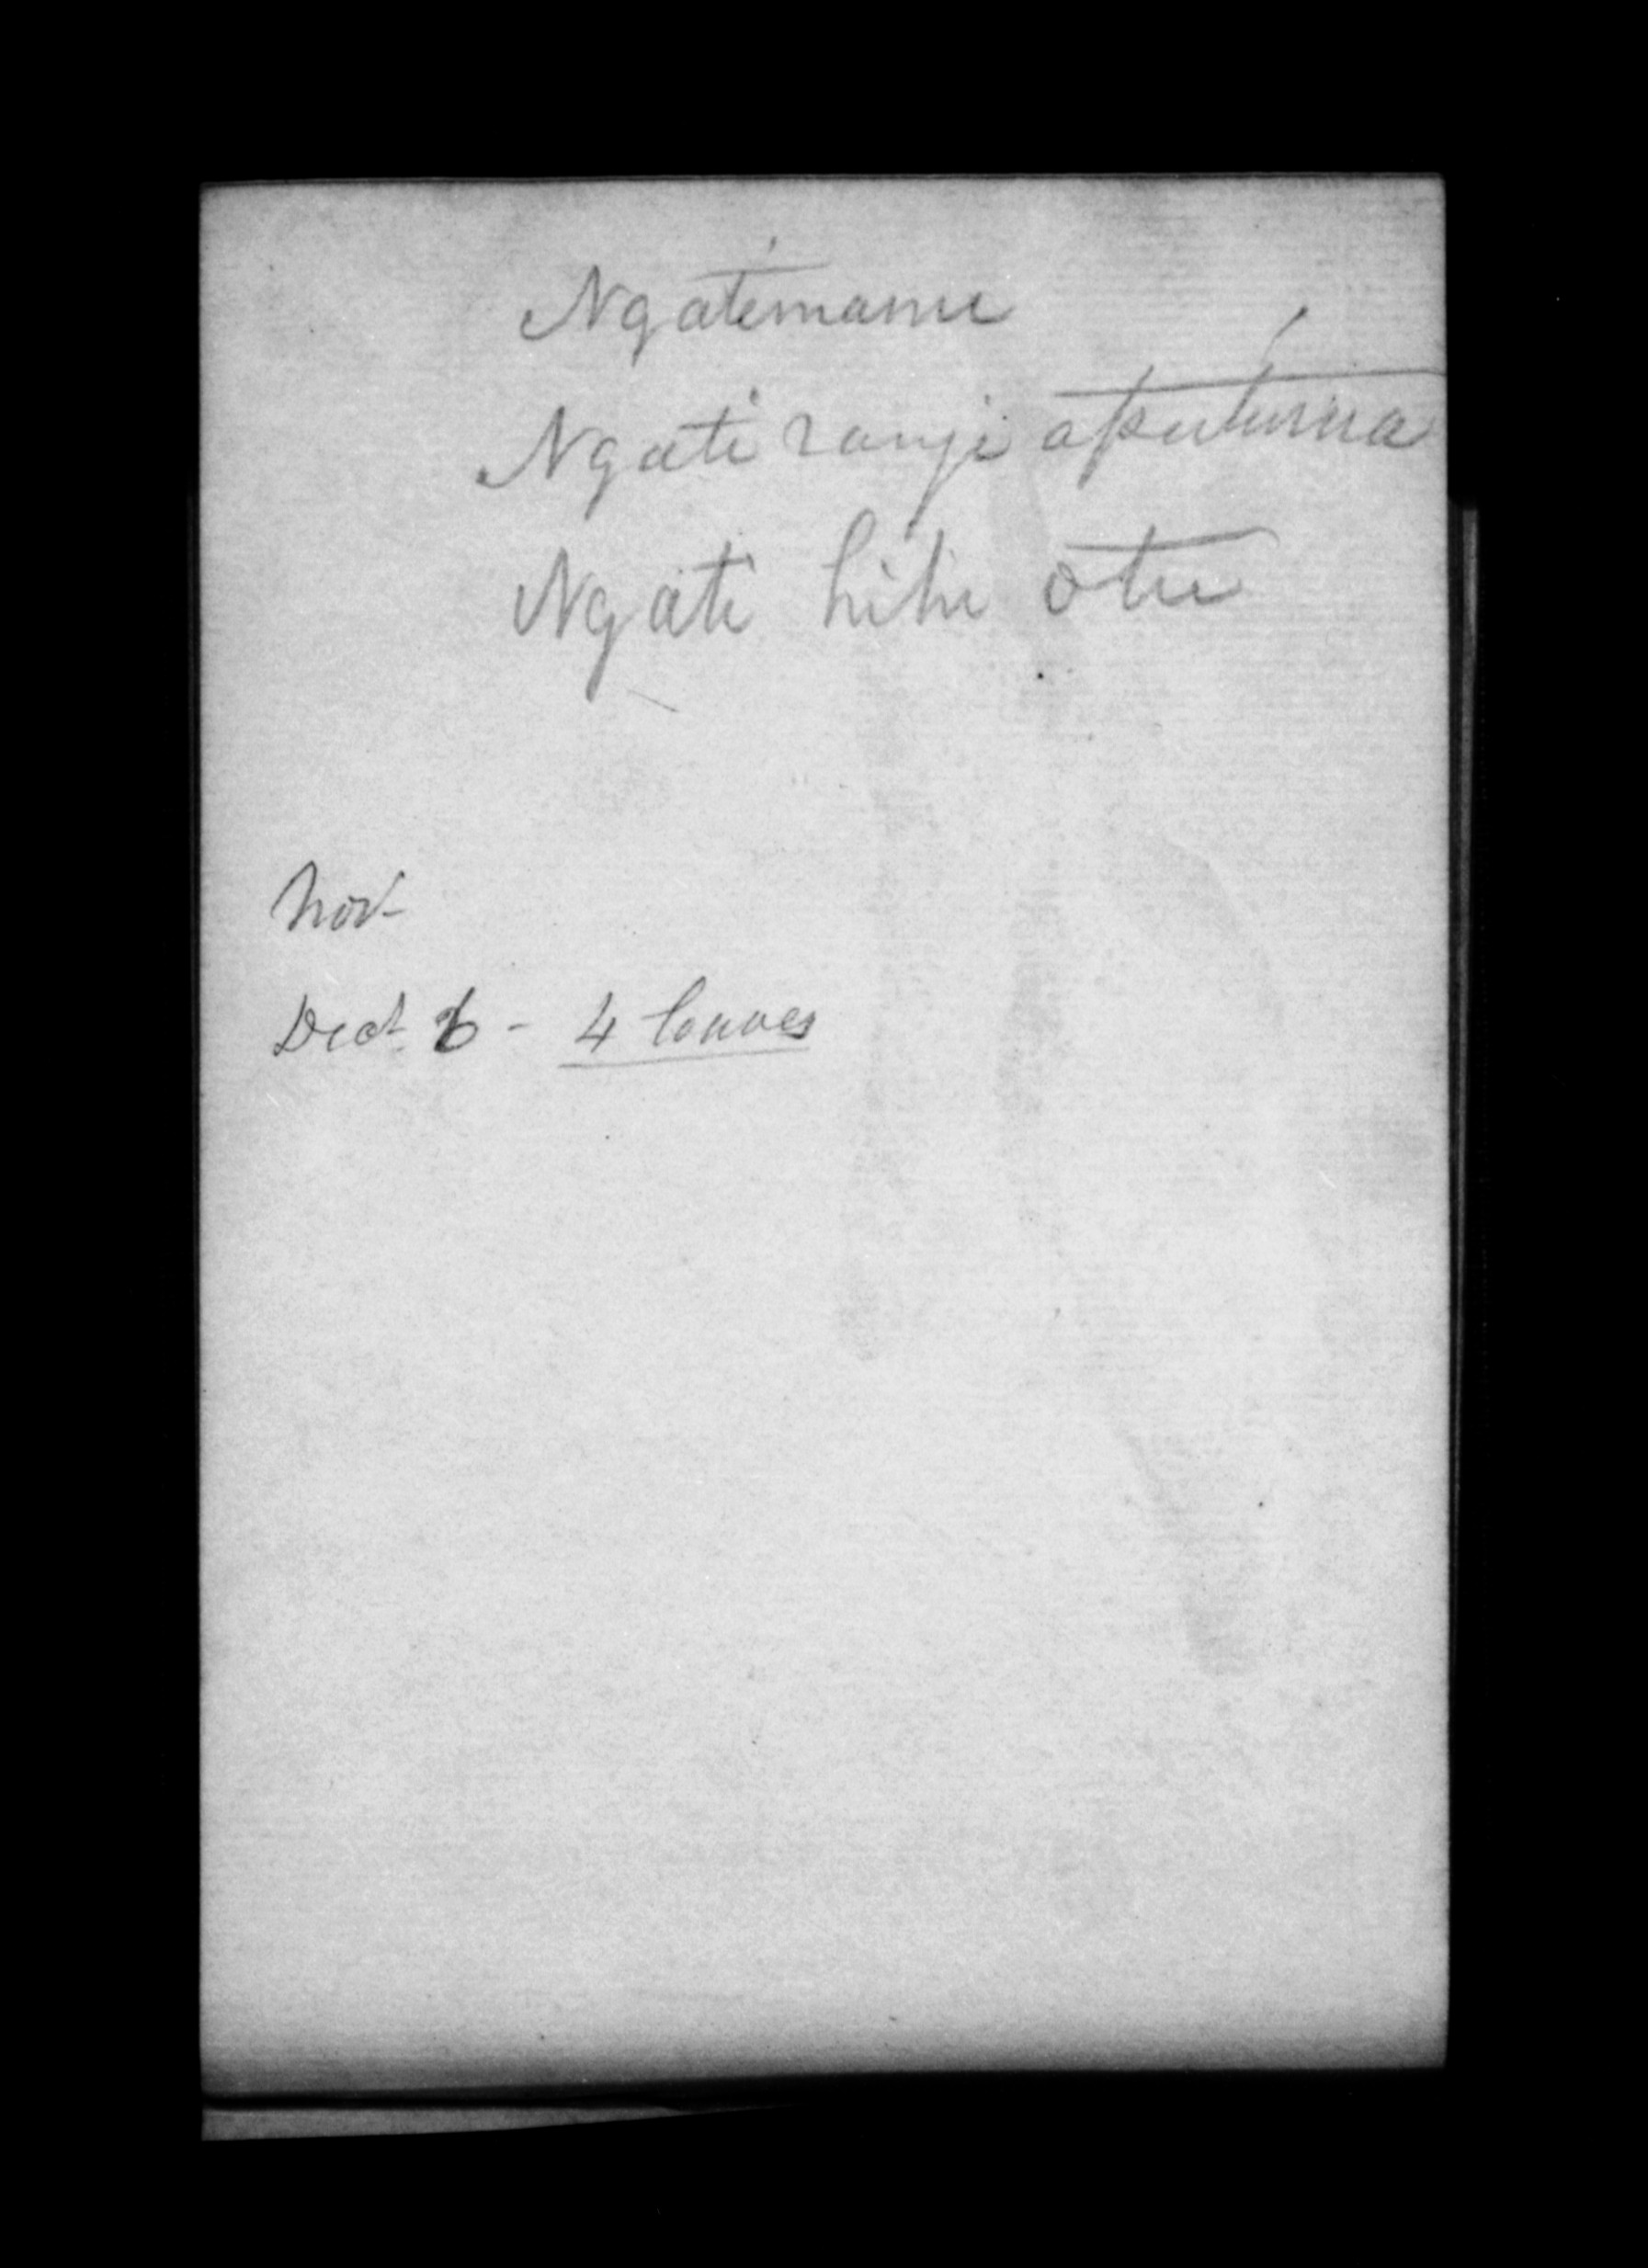 Ngatimanu
Ngati rangi
Ngati hihi otu
Nov
Dec 6 - 4 loaves